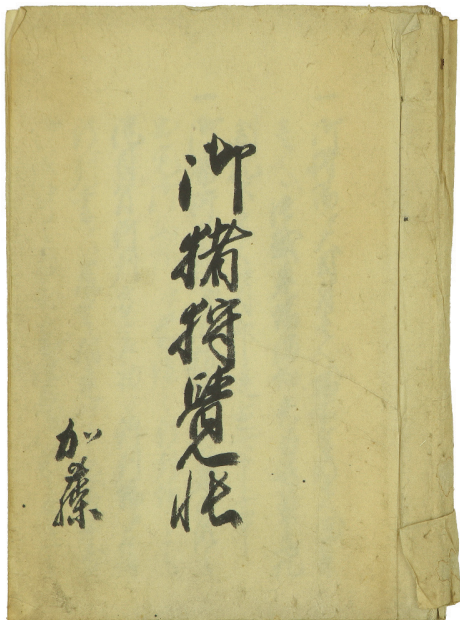 御猪狩覺帳
加藤